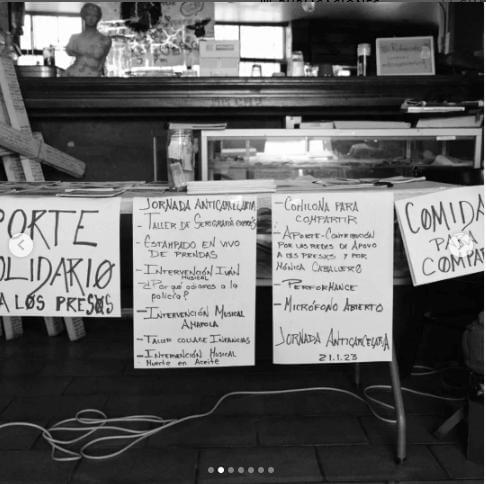 PORTE
SOLIDARIO
A LØS PRESØS
JORNADA ANTICARCELARIA
- TALLER DE SERIGRAFIA EXPRÉS
- ESTAMPADO EN VIVO
DE PRENDAS
- INTERVENCIÓN IVÁN
MUSICAL
¿Por qué odiamos a la
policía?
- INTERVENCIÓN MUSICAL
AMAPOLA
- TALLER COLLAGE INFANCIAS
- INTERVENCIÓN MUSICAL
Muerte en Aceite
- COMILONA PARA
COMPARTIR
- APORTE-CONTRIBUCIÓN
POR LAS REDES DE APOYO
A LØS PRESØS Y POR
MÓNICA CABALLERO
- PERFORMANCE
- MICRÓFONO ABIERTO
JORNADA ANTICARCELARIA
21.1.23
COMIDA
PARA
COMPAR